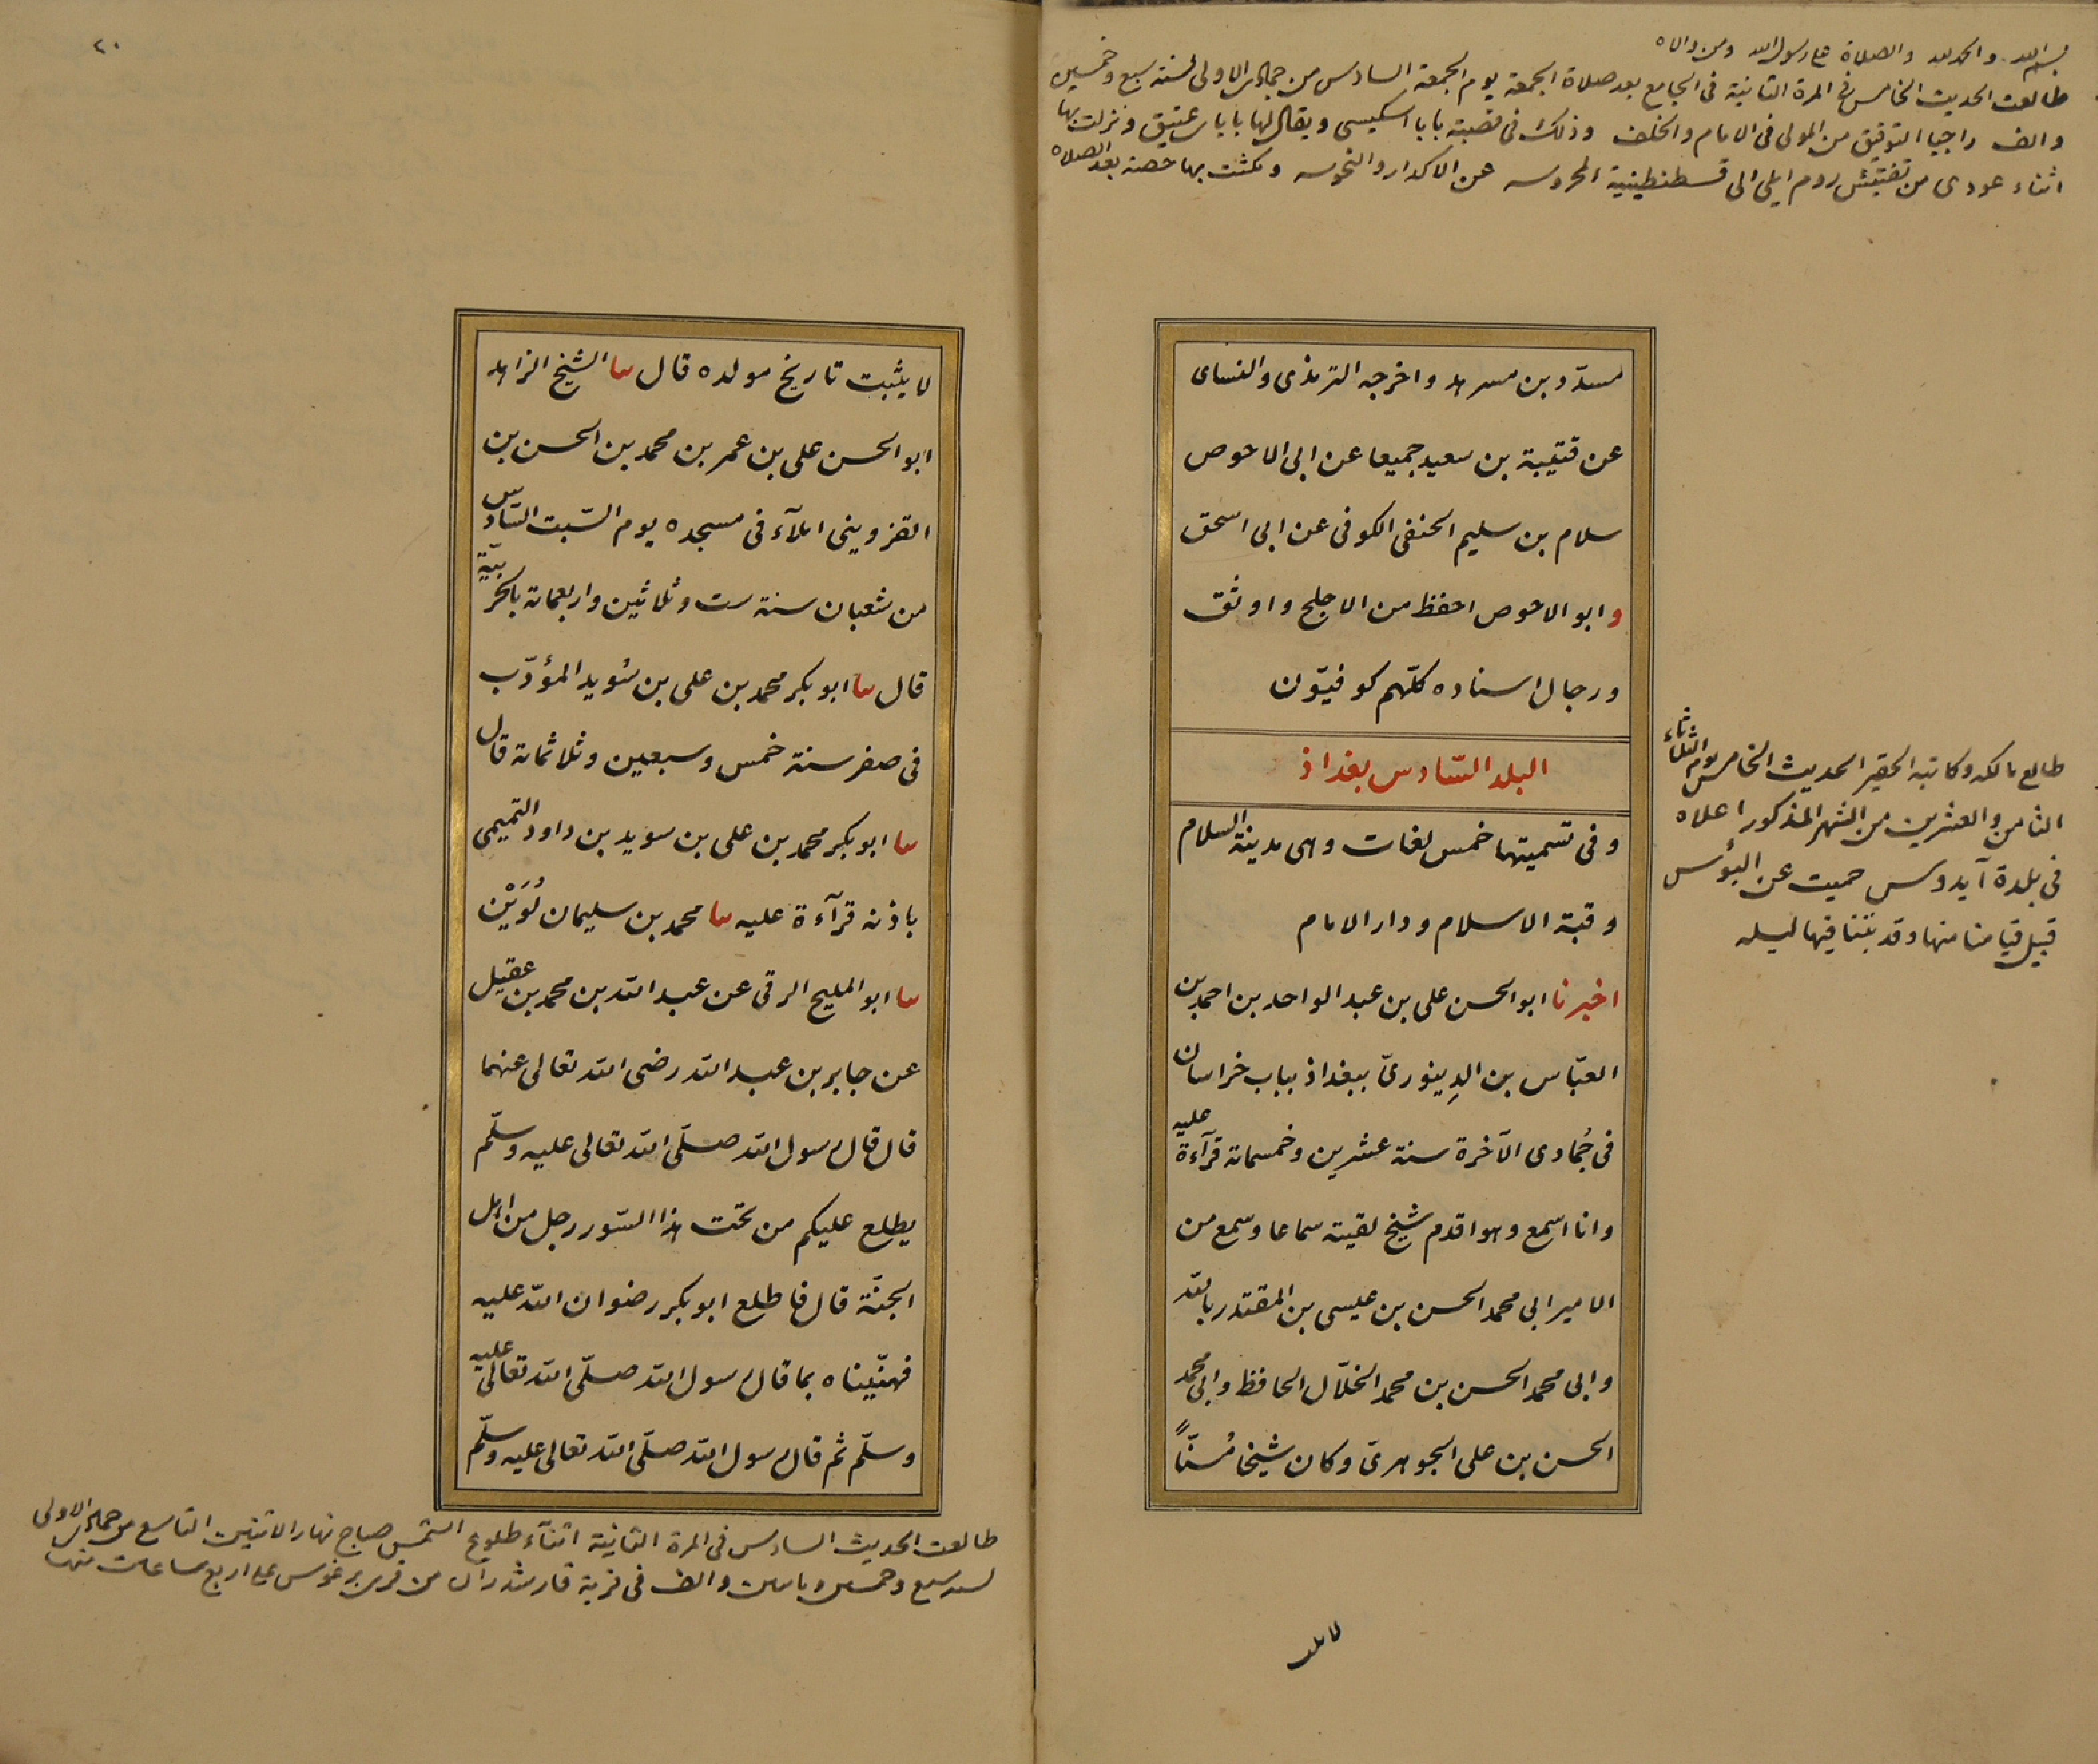 بسم الله والحمد لله والصلاة على رسول الله ومن والاه
طالعت الحديث الخامس في المرة الثانية في الجامع بعد صلاة الجمعة يوم الجمعة السادس من جمادى الاولى لسنة سبع وخمسين
والف راجيا التوفيق من المولى في الامام والخلف وذلك في قصبة بابا اسكيسى ويقال لها باباى عتيق ونزلت بها
اثناء عودى من تفتيش روم ايلى الى قسطنطينية المحروسه عن الاكدار والنحوسه ومكثت بها حصة بعد الصلاه
مسدّد بن مسرهد واخرجه الترمذى والنساى
عن قتيبة بن سعيد جميعا عن ابى الاحوص
سلام بن سليم الحنفى الكوفى عن ابى اسحق
وابو الاحوص احفظ من الاجلح واوثق
ورجال اسناده كلّهم كوفيّون
البلد السّادس بغداذ
وفى تسميتها خمس لغات وهى مدينة السلام
وقبة الاسلام ودار الامام
اخبرنا ابو الحسن على بن عبد الواحد بن احمد بن
العبّاس بن الدِينورىّ ببغداذ بباب خراسان
فى جُمادى الآخرة سنة عشرين وخمسمائة قرآءة عليه
وانا اسمع وهو اقدم شيخ لقيته سماعا وسمع من
الامير ابى محمد الحسن بن عيسى بن المقتدر بالله
وابى محمد الحسن بن محمد الخلّال الحافظ وابى محمد
الحسن بن على الجوهرىّ وكان شيخا مُسنّاً
طالع مالكه وكاتبه الحقير الحديث الخامس يوم الثلاثاء
الثامن والعشرين من الشهر المذكور اعلاه
فى بلدة آيدوس حميت عن البؤس
قبيل قيامنا منها وقد بتنا فيها ليله
لا يثبت
٢٠
لا يثبت تاريخ مولده قال سا الشيخ الزاهد
ابو الحسن على بن عمر بن محمد بن الحسن بن
القزوينى املآء فى مسجده يوم السّبت السّادس
من شعبان سنة ست وثلاثين واربعمائة بالحربيّة
قال سا ابو بكر محمد بن على بن سُويد المؤدّب
فى صفر سنة خمس وسبعين وثلاثمائة قال
سا ابو بكر محمد بن على بن سويد بن داود التميمى
باذنه قرآءة عليه سا محمد بن سليمان لُوَيْن
سا ابو المليح الرقى عن عبد الله بن محمد بن عقيل
عن جابر بن عبد الله رضى الله تعالى عنهما
قال قال رسول الله صلّى الله تعالى عليه وسلّم
يطلع عليكم من تحت هذا السّور رجل من اهل
الجنّة قال فاطلع ابو بكر رضوان الله عليه
فهنّيناه بما قال رسول الله صلّى الله تعالى عليه
وسلّم ثم قال رسول الله صلّى الله تعالى عليه وسلّم
طالعت الحديث السادس فى المرة الثانية اثنآء طلوع الشمس صباح نهار الاثنين التاسع من جمادى الاولى
لسنة سبع وخمسين ومايتين والف فى قرية من قرى برغوس على اربع ساعات منها